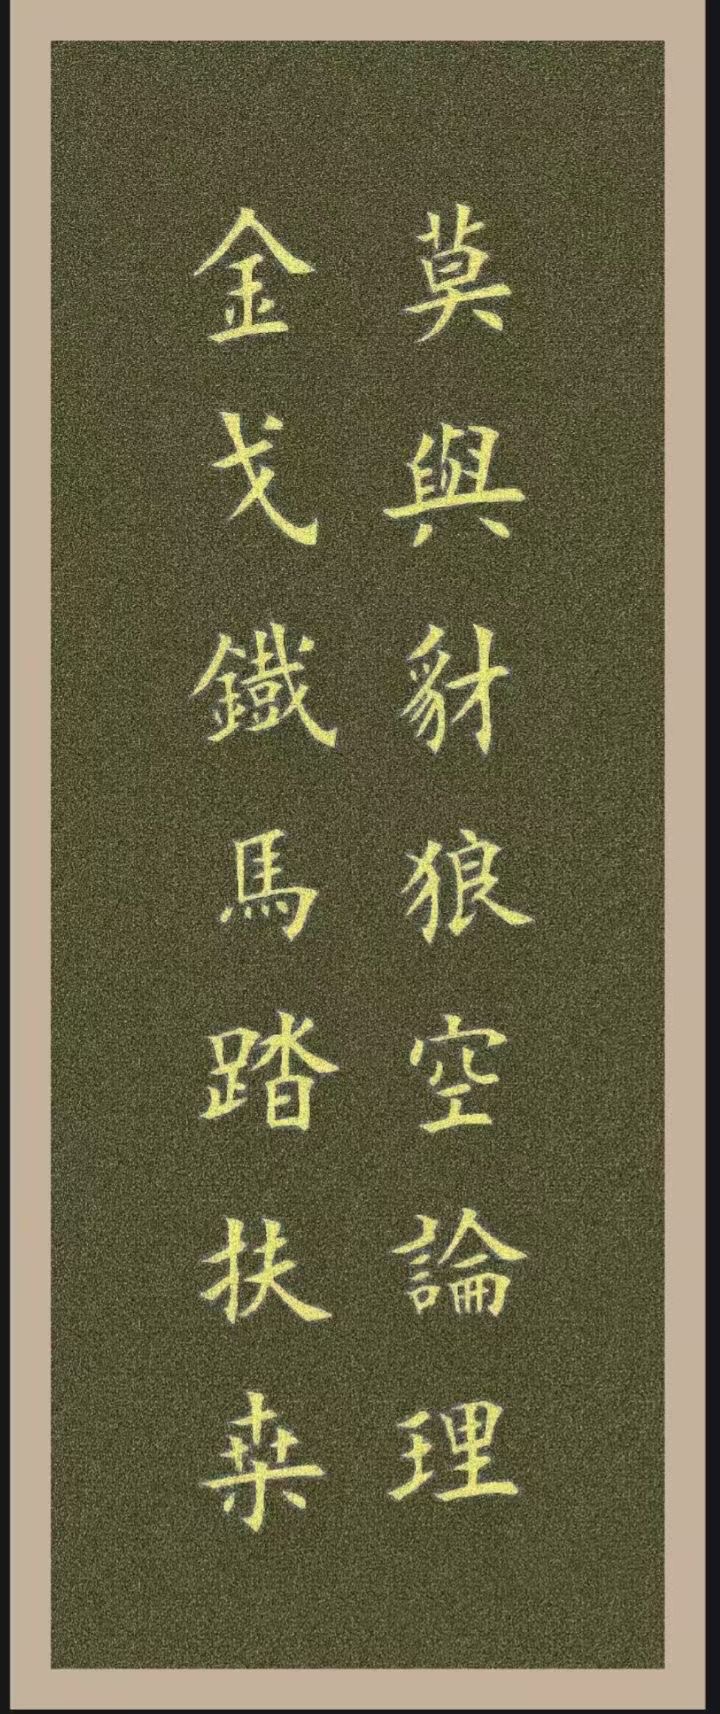 莫與豺狼空論理
金戈鐵馬踏扶桒